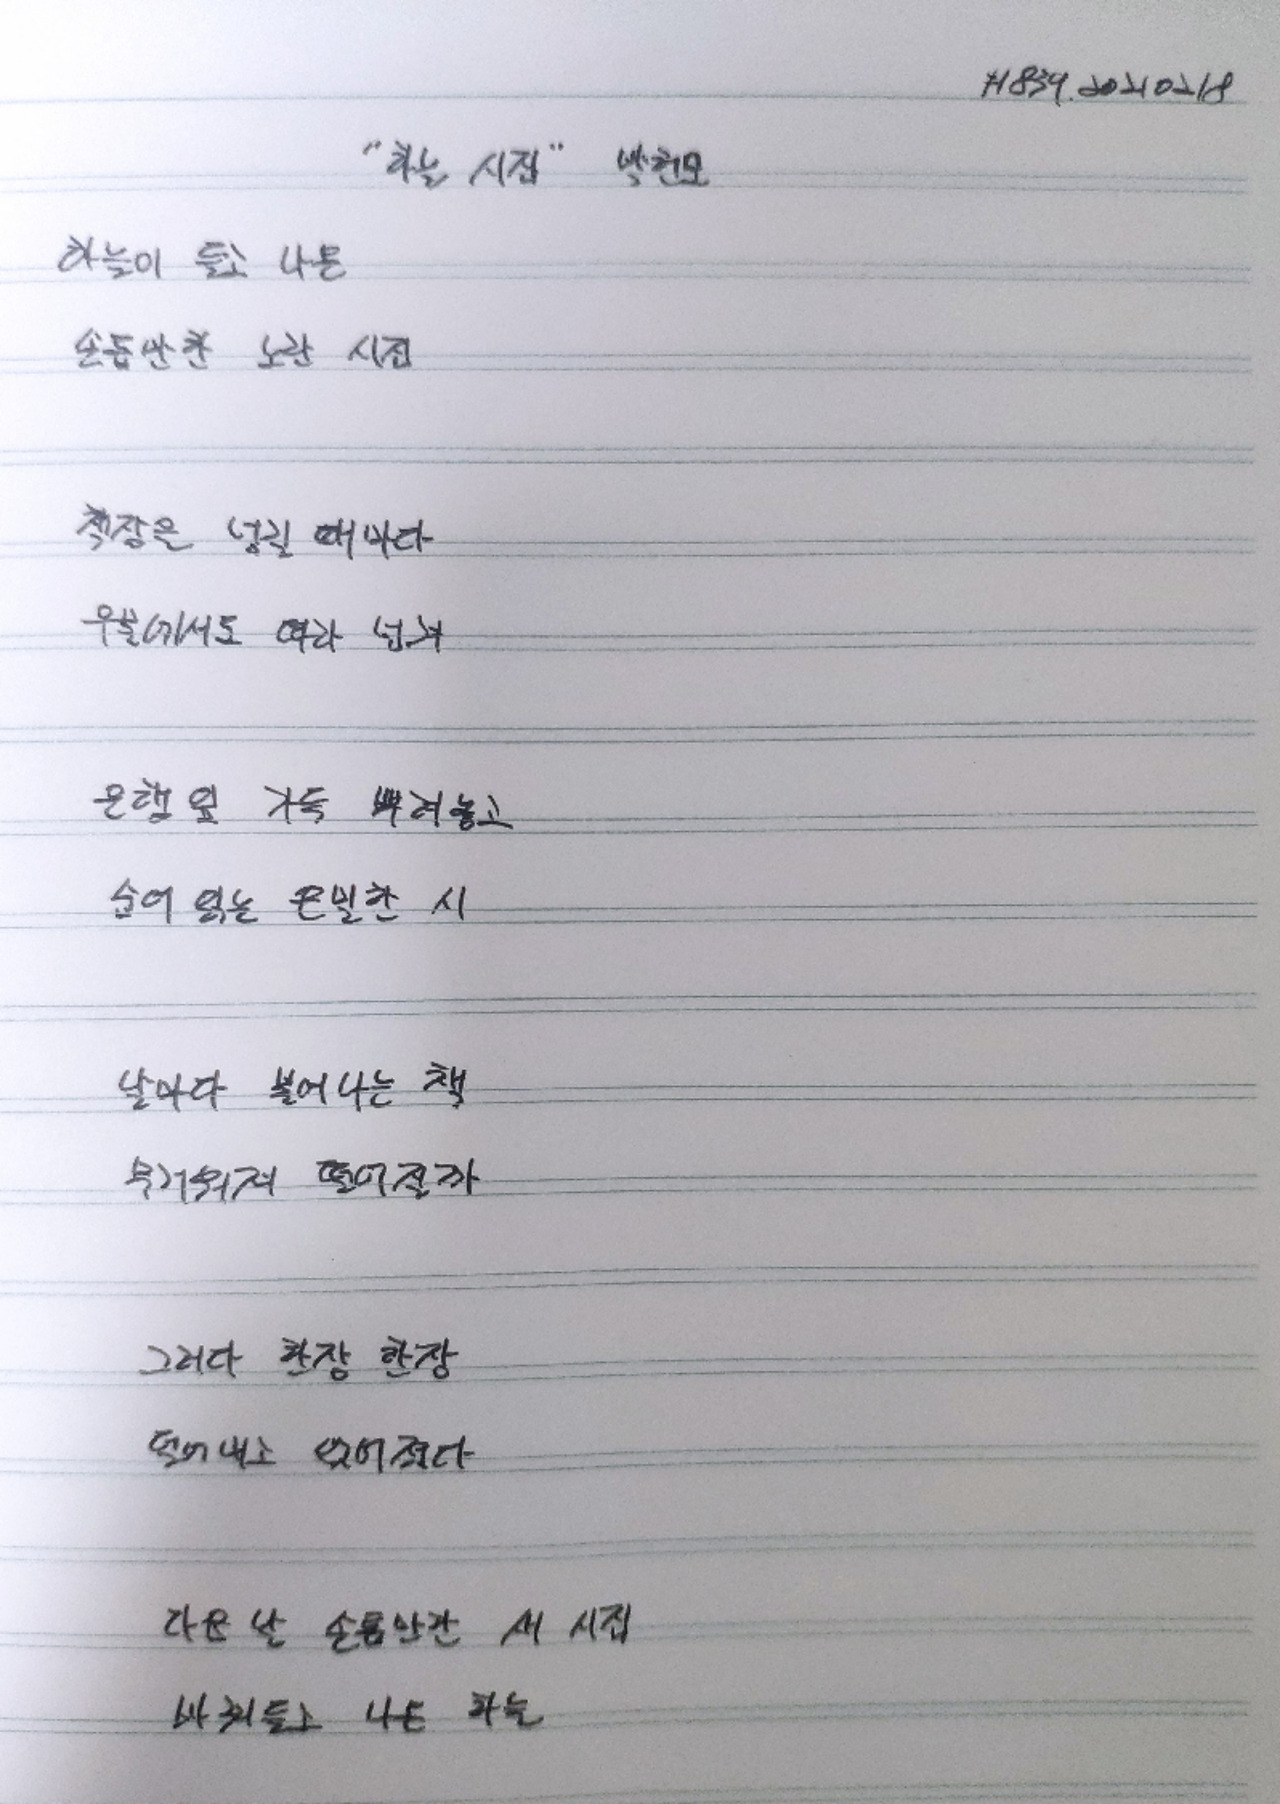 #834. 20210218
"하늘 시집" 박헌모
하늘이 들고 나온
손톱만한 노란 시집
책장을 넘길 때마다
우물가서도 따라 넘겨
은행잎 가득 뿌려놓고
숨어 읽는 은밀한 시
날마다 불어나는 책
무거워져 떨어질까
그러다 한장 한장
뜯어내고 얇아졌다
다음 날 손톱만한 새 시집
바꿔들고 나온 하늘